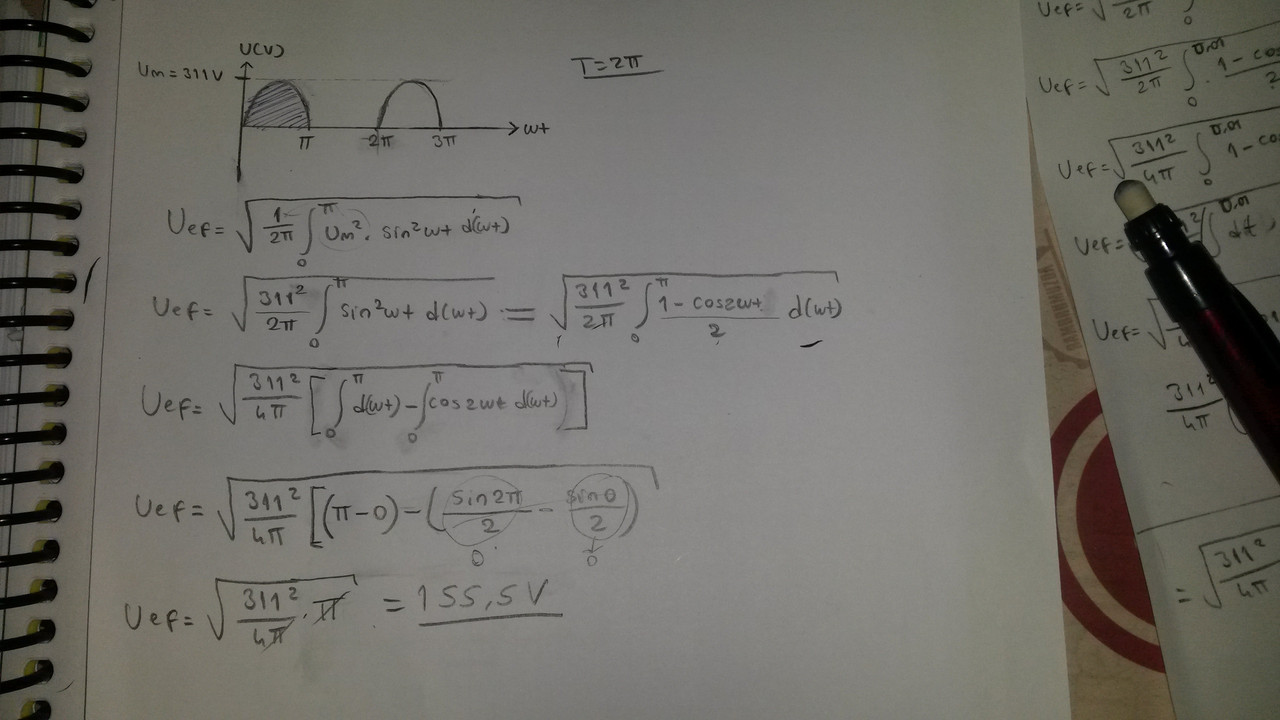 U(V)
Um = 311V
T = 2π
ωt
π 2π 3π
Uef = √(1/2π ∫₀^π Um² · sin²ωt d(ωt))
Uef = √(311²/2π ∫₀^π sin²ωt d(ωt)) = √(311²/2π ∫₀^π (1 - cos2ωt)/2 d(ωt))
Uef = √(311²/4π [∫₀^π d(ωt) - ∫₀^π cos2ωt d(ωt)])
Uef = √(311²/4π [(π-0) - (sin2π/2 - sin0/2)
0 0
Uef = √(311²/4π · π) = 155,5V
Uef = √ 2π ∫₀
Uef = √(311²/2π ∫₀^0,01 · 1 - cos 2
Uef = √(311²/4π ∫₀^0,01 1 - cos
Uef = ∫ 0,01 dt
Uef = √
311²/4π (
= √(311²/4π